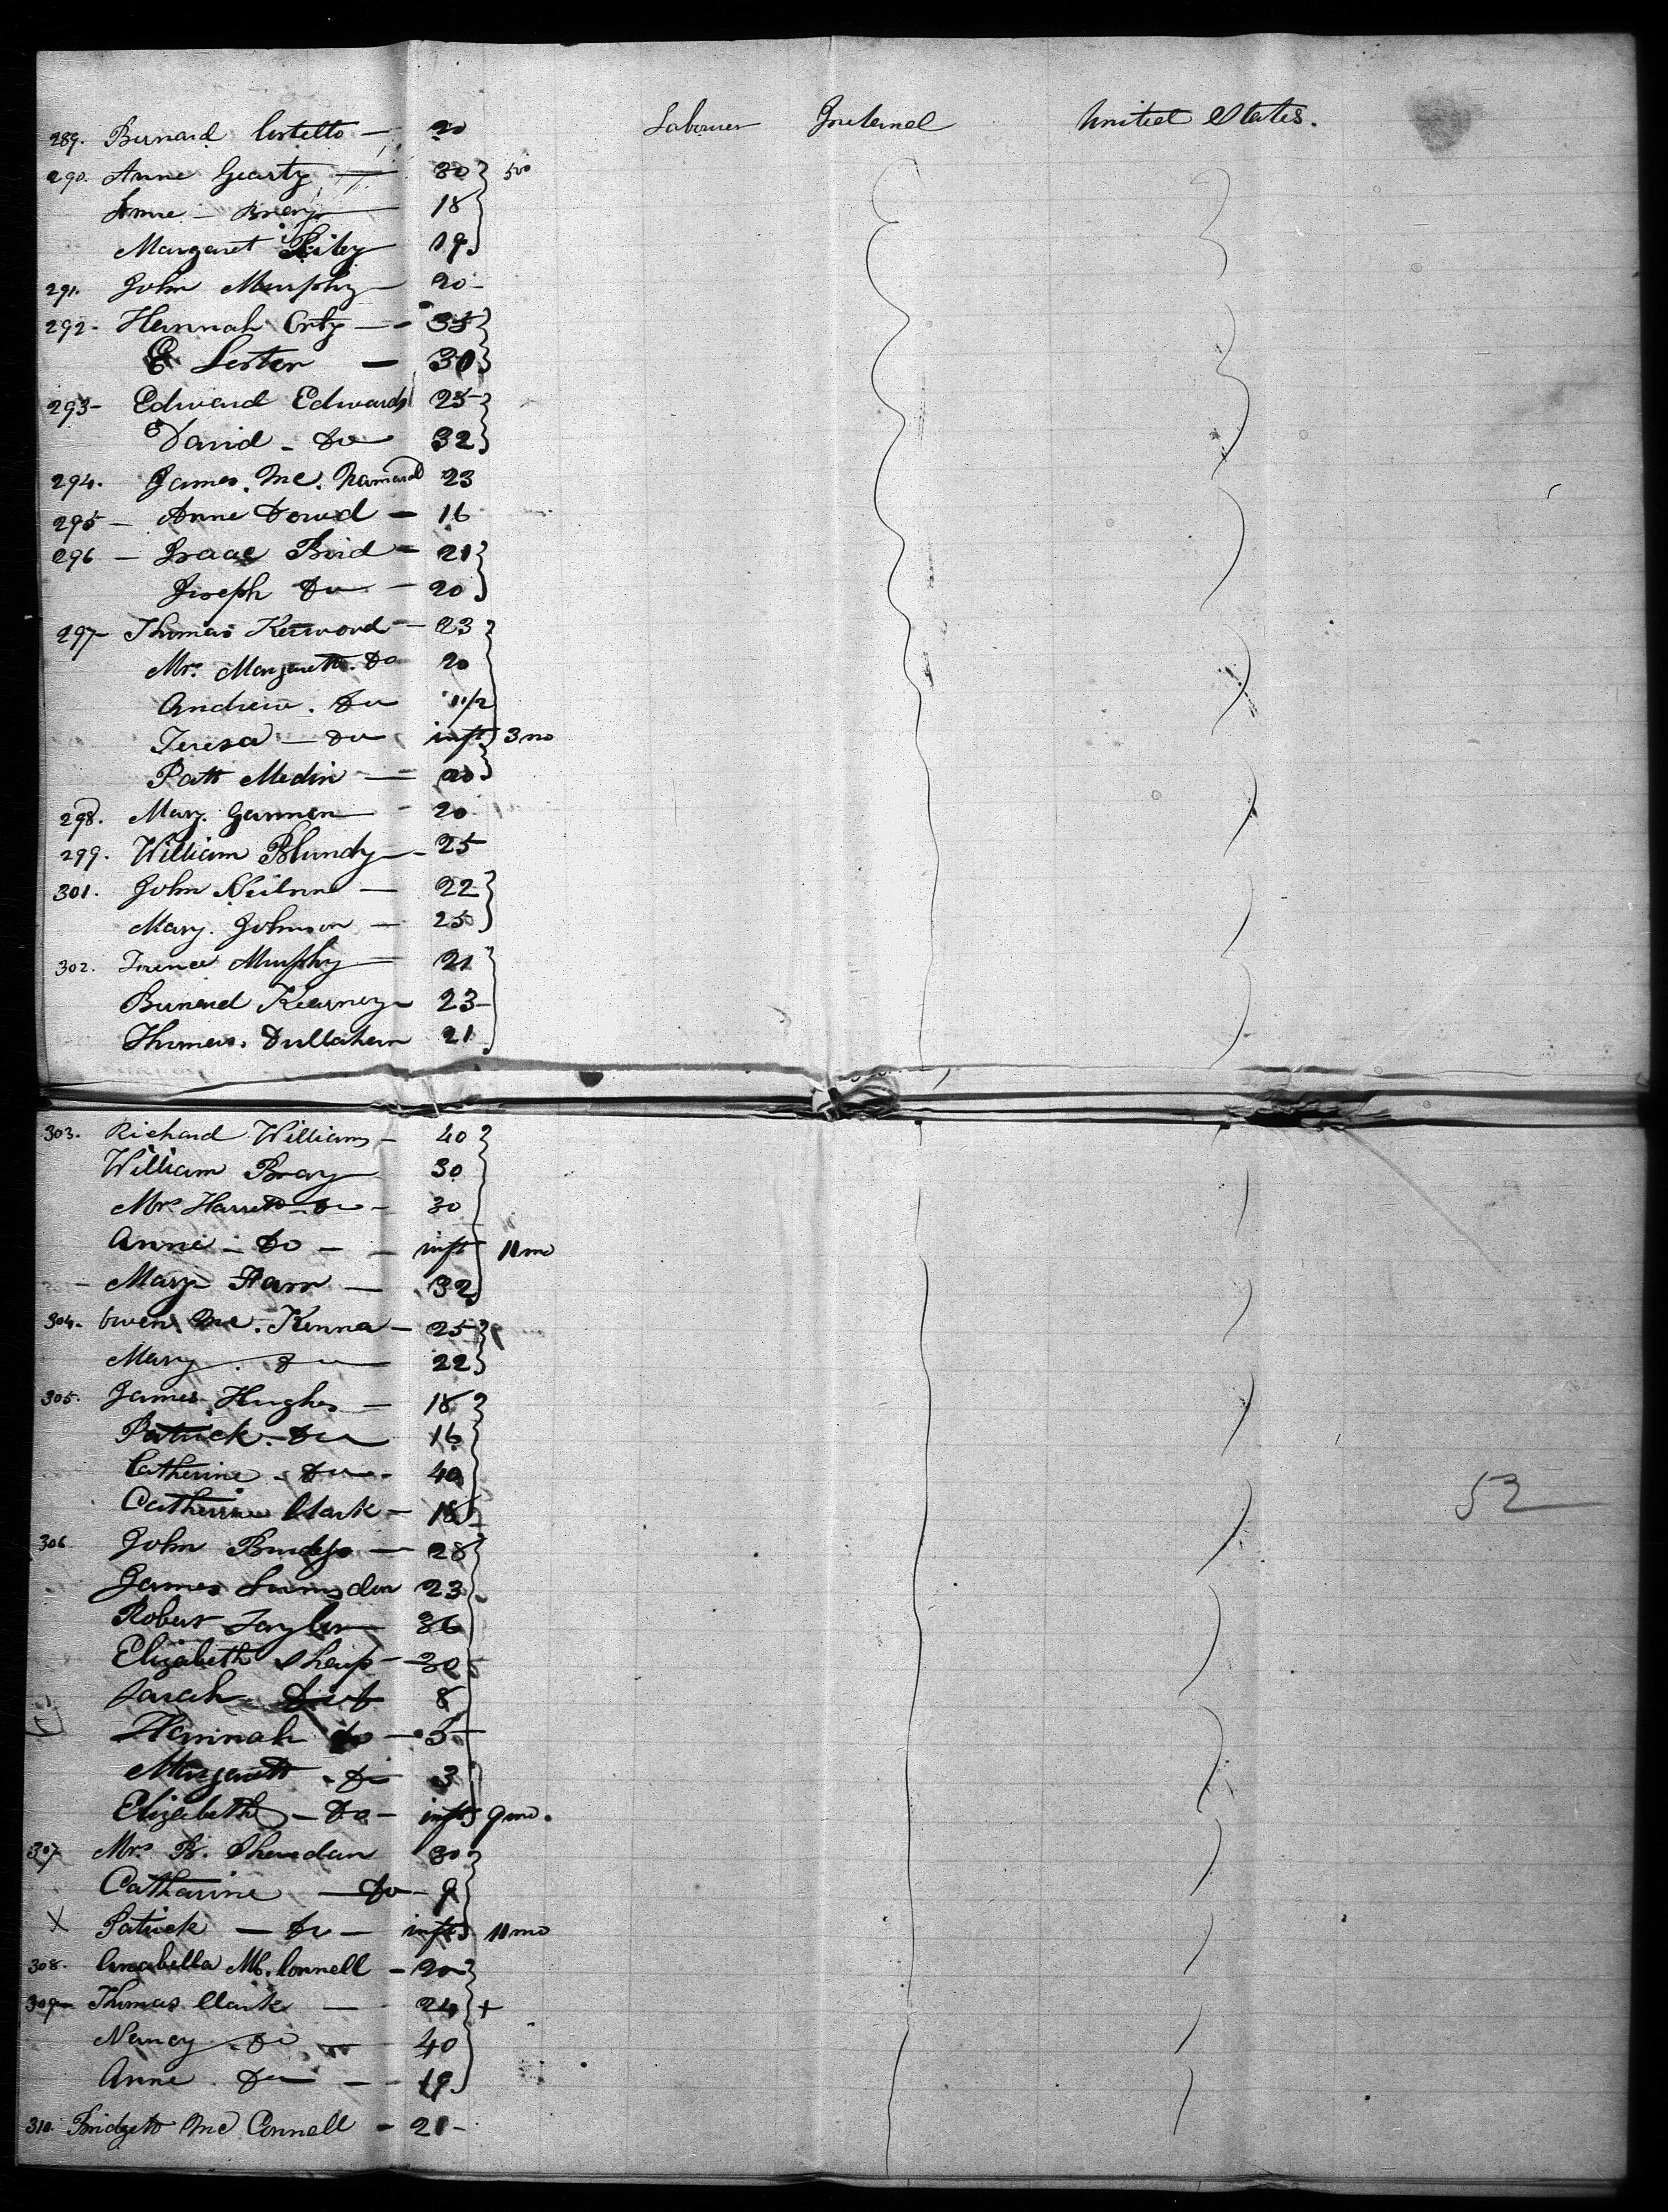 289. Bernard Costello — 20 Labourer Ireland United States.
290. Anne Gearty — 30 500
Anne — Breny — 18
Margaret Riley 19
291. John Murphy — 20 -
292 - Hannah Orty — 35
E Lester — 30
293 - Edward Edwards 25 -
David - Do 32
294. James. Mc. Namara 23
295 — Anne Dowd — 16
296 — Isaac Bird — 21
Joseph Do — 20
297 - Thomas Kerwood — 23
Mrs. Margarett. Do 20
Andrew. Do 1 1/2
Teresa — Do inft 3 mo
Patt Medin — 20
298. Mary. Garmon — 20
299. William Blundy — 25
301. John Neilson — 22
Mary. Johnson — 25
302. Terence Murphy — 21
Bernard Kearney — 23 -
Thomas. Dullahan 21
303. Richard Williams — 40
William Bray 30
Mrs Harrett - Do - 30
Anne - Do - - inft 11 mo
- Mary Harr — 32
304. Owen. Mc. Kenna — 25
Mary. Do 22
305. James. Hughes — 18
Patrick - Do 16
Catherine - Do - 40
Catherine Clark — 18
306 John — 28
James Lumsden 23
Robert Taylor — 36
Elizabeth Sharp — 30
Sarah Do 8
Hannah Do — 5
Margarett - Do 3
Elizabeth — Do — inft 9 mo.
307 Mrs. B. Sheredan 30
Catharine — Do — 9
X Patrick — Do — inft 11 mo
308. Anabella Mc. Connell — 20
309 — Thomas Clark — 24 +
Nancy. Do — 40
Anne. Do — 19
310. Bridgett Mc Connell — 21 -
52